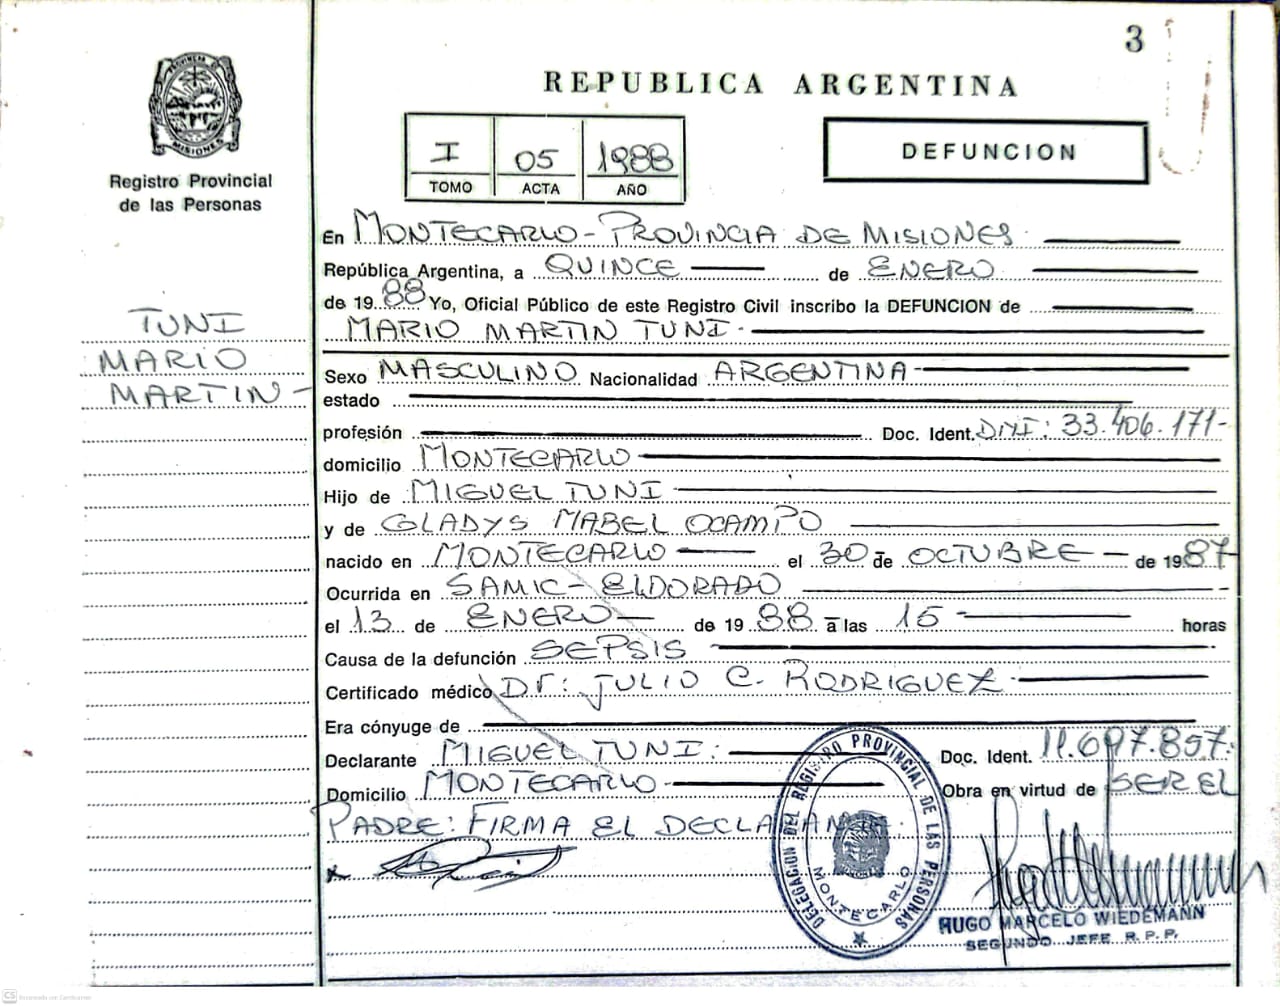 3
REPUBLICA ARGENTINA
PROVINCIA DE
MISIONES
Registro Provincial
de las Personas
I 05 1988
TOMO ACTA AÑO
DEFUNCION
En MONTECARLO - PROVINCIA DE MISIONES
República Argentina, a QUINCE de ENERO
de 19 88 Yo, Oficial Público de este Registro Civil inscribo la DEFUNCION de
MARIO MARTIN TUNI
TUNI
MARIO
MARTIN -
Sexo MASCULINO Nacionalidad ARGENTINA
estado
profesión Doc. Ident. DNI: 33.406.171-
domicilio MONTECARLO
Hijo de MIGUEL TUNI
y de GLADYS MABEL OCAMPO
nacido en MONTECARLO el 30 de OCTUBRE de 1987
Ocurrida en SAMIC - ELDORADO
el 13 de ENERO de 19 88 a las 15 horas
Causa de la defunción SEPSIS
Certificado médico Dr: JULIO C. RODRIGUEZ
Era cónyuge de
Declarante MIGUEL TUNI: Doc. Ident. 11.697.857.
Domicilio MONTECARLO Obra en virtud de SER EL
PADRE: FIRMA EL DECLARANTE.
DELEGACION DEL REGISTRO PROVINCIAL DE LAS PERSONAS
MONTECARLO
HUGO MARCELO WIEDEMANN
SEGUNDO JEFE R.P.P.
CS Escaneado con CamScanner